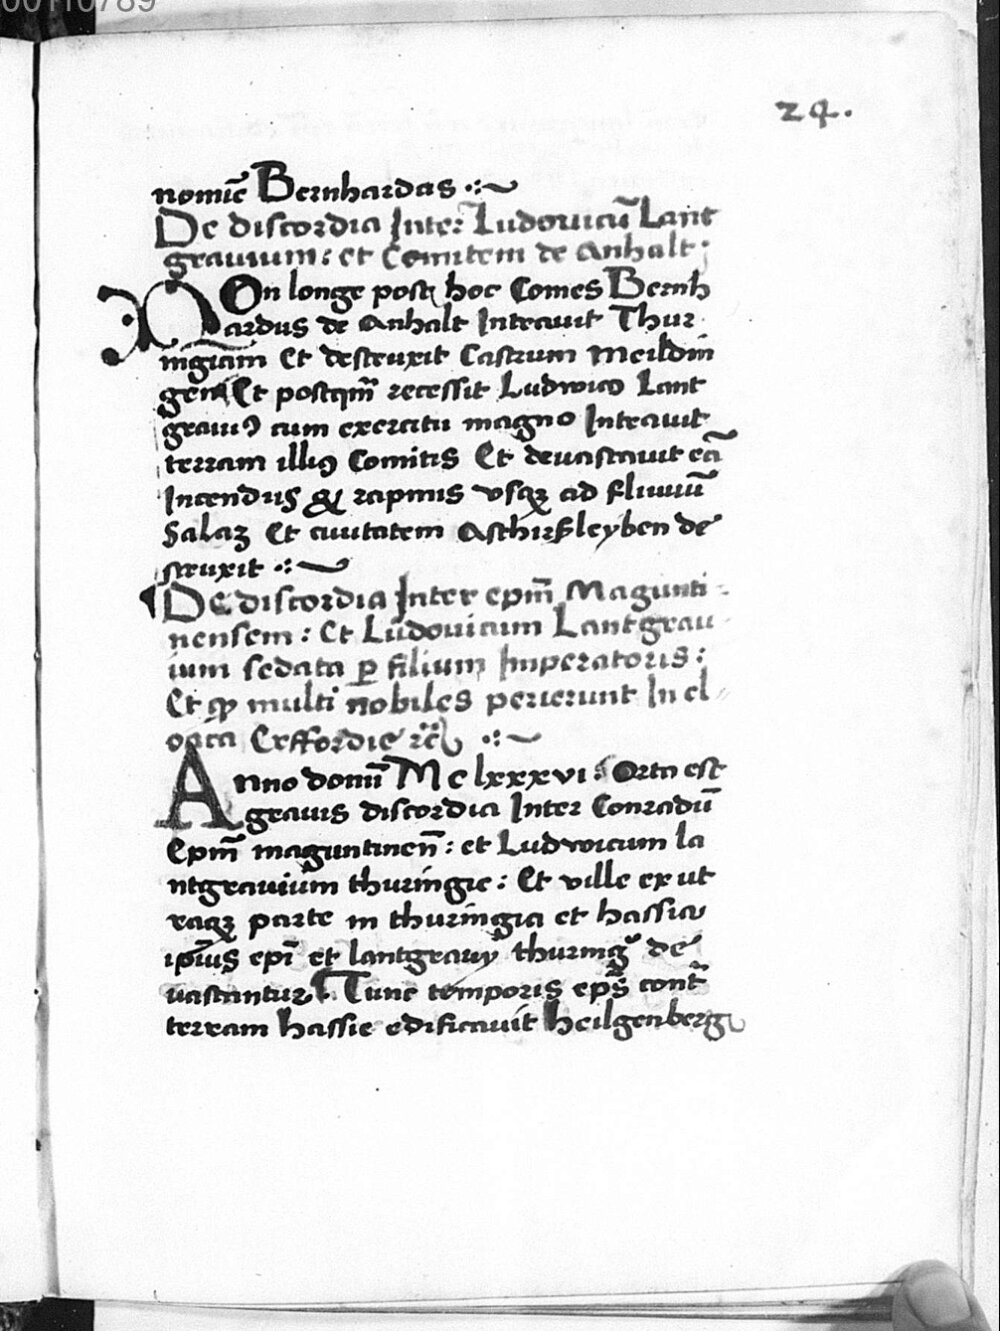 00110789
24.
nomīe Bernhardus
De discordia Inter Ludouicū Lant
grauium : et Comitem de Anhalt :
NOn longe post hoc Comes Bernh
ardus de Anhalt Intrauit Thur
ingiam Et destruxit Castrum meildin
gen Et postqm̄ recessit Ludwicꝰ Lant
grauiꝰ cum exercitu magno Intrauit
terram illiꝰ Comitis Et deuastauit eā
Incendiis & rapinis vsqꝫ ad fluuiū
Salaꝫ Et ciuitatem Aschirßleyben de
struxit
De discordia Inter epm̄ Magunti
nensem : Et Ludouicum Lantgrau
ium sedata ꝑ filium Imperatoris :
Et ꝙ multi nobiles perierunt In cl
oaca Erffordie ꝛc̄
Anno domī Mclxxxvi Orta est
grauis discordia Inter Conradū
Epm̄ maguntinen̄ : et Ludwicum la
ntgrauium thuringie : Et ville ex ut
raqꝫ parte in thuringia et hassia
ip̄ius epī et lantgrauij thuring̉ de
uastantur Tunc temporis ep̄s cont̄
terram hassie edificauit heilgenberg